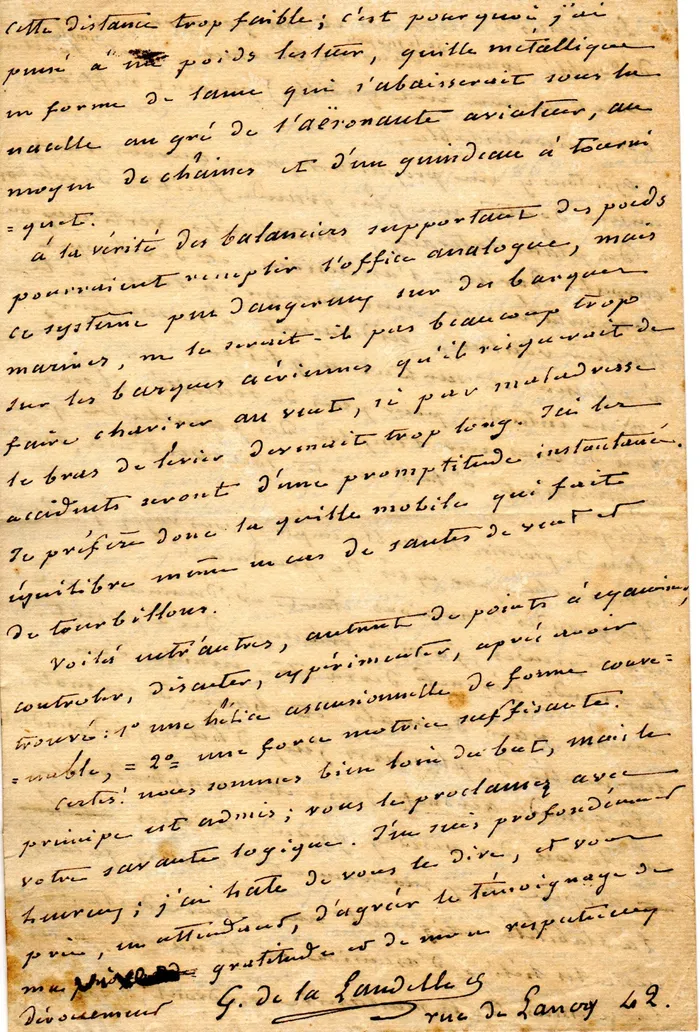 cette distance trop faible; c'est pourquoi j'ai
pensé à un poids lesteur, quille métallique
en forme de lame qui s'abaisserait sous la
nacelle au gré de l'aëronaute aviateur, au
moyen de chaînes et d'un guindeau à tourni
=quet.
à la vérité des balanciers supportant des poids
pourraient remplir l'office analogue, mais
ce système peu dangereux sur des barques
marines, ne le serait-il pas beaucoup trop
sur les barques aériennes qu'il risquerait de
faire chavirer au vent, si par maladresse
le bras de lévier devenait trop long. Ici les
accidents seront d'une promptitude instantané.
Je préfère donc la quille mobile qui fait
équilibre même en cas de sautes de vent et
de tourbillons.
Voilà entr'autres, autant de points à examiner,
controler, discuter, expérimenter, après avoir
trouvé: 1º une hélice ascensionnelle de forme conve=
=nable, = 2º une force motrice suffisante.
Certes! nous sommes bien loin du but, mais le
principe est admis; vous le proclamez avec
votre savante logique. J'en suis profondément
heureux; j'ai hate de vous le dire, et vous
prie, en attendant, d'agréer le témoignage de
ma gratitude et de mon respectueux
dévouement G. de la Landelle
rue de Lancry 42.